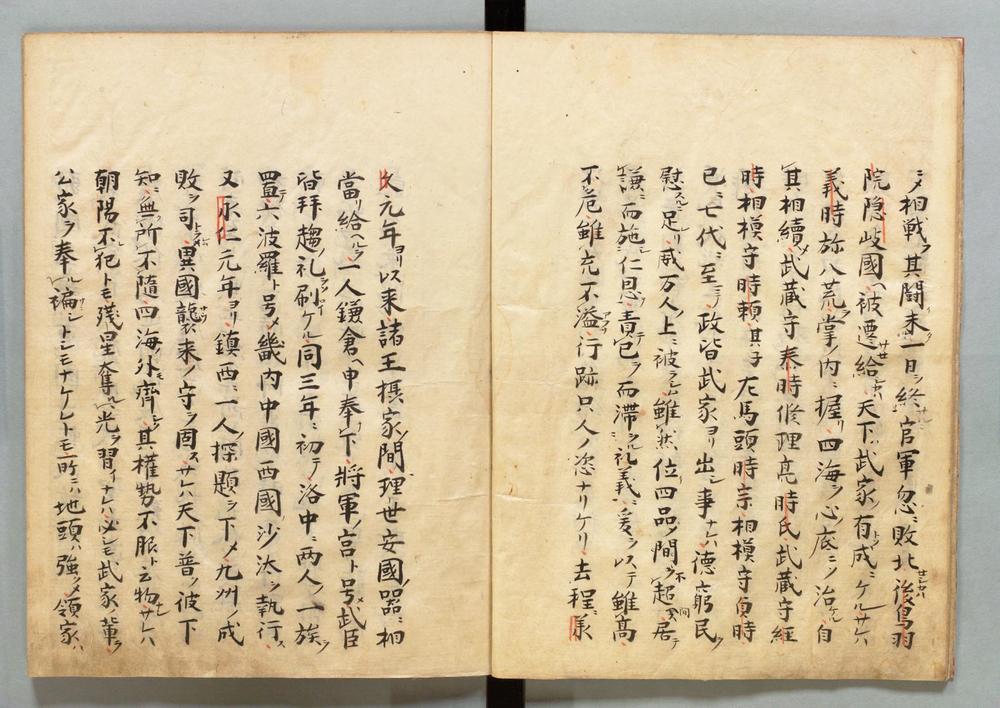 シメ相戦フ其闘未一日シ終官軍忽ニ敗北後鳥羽
院隠岐國ヘ被遷給天下武家ノ有成ニケルサレハ
義時弥八荒ヲ掌ノ内ニ握リ四海シ心底ニソ治ケル自
其相續メ武蔵守泰時修理亮時氏武蔵守経
時相模守時頼其子左馬頭時宗相模守貞時
已ニ七代ニ至ニテ政皆武家ヨリ出シ事ナレハ徳窮民ヲ
慰スルニ足レリ威万人ノ上ニ被ラシム雖然位四品ノ間ヲ不超矣居テ
謙ニ而施シ仁恩ヲ責已ヲ而滞ル礼義ニ爰ヲ以テ雖高
不危雖充不溢行跡只人ノ恣ナリケリ去程ニ承
久元年ヨリ以来諸王摂家ノ間ニ理世安國ノ器ニ相
當リ給ヘルヲ一人鎌倉ヘ申奉下シ将軍ノ宮ト号メ武臣
皆拜趨ノ礼刷ケル同三年ニ初テ洛中ニ両人ノ一族ヲ
置テ六波羅ト号メ畿内中國西國ノ沙汰シ執行ス
又永仁元年ヨリ鎮西ニ一人ノ探題シ下メ九州ノ成
敗シ司トメ異國襲来ノ守シ固スサレハ天下普ク彼下
知ニ無所不隨四海ノ外モ齊ク其權勢不服ト云物ナシサレハ
朝陽不犯トモ残星奪ル光ヲ習イナレハ必シモ武家ノ輩ヲ
公家ヲ奉ル褊シトシモナケレトモ所ニハ地頭ハ強クメ領家ハ